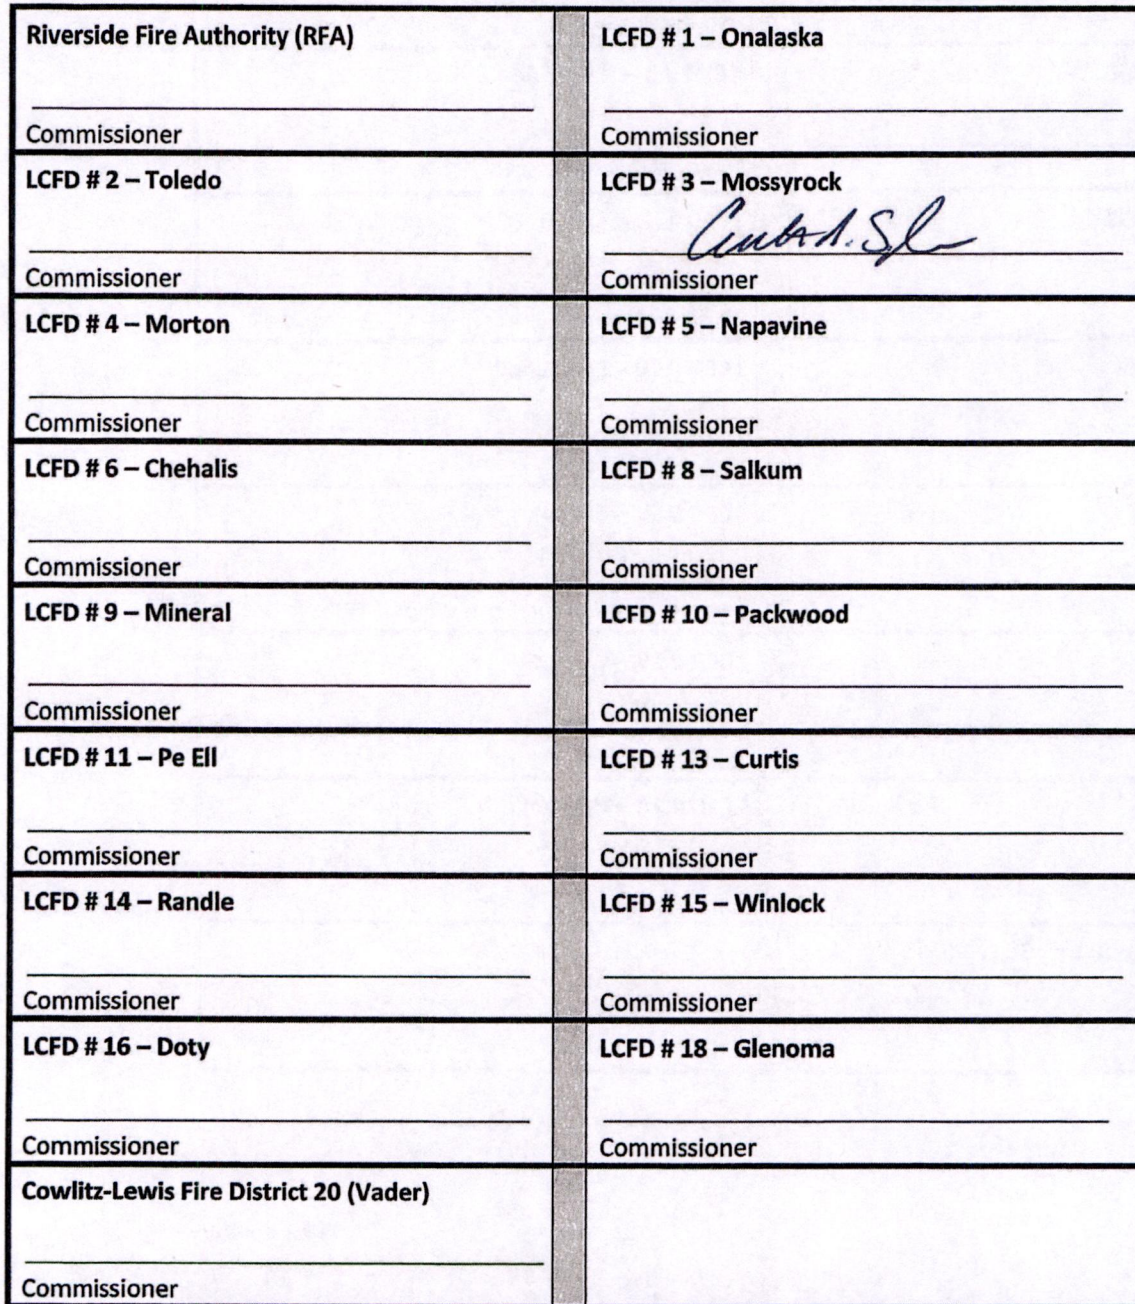 Riverside Fire Authority (RFA)
Commissioner
LCFD # 1 – Onalaska
Commissioner
LCFD # 2 – Toledo
Commissioner
LCFD # 3 – Mossyrock
Commissioner
LCFD # 4 – Morton
Commissioner
LCFD # 5 – Napavine
Commissioner
LCFD # 6 – Chehalis
Commissioner
LCFD # 8 – Salkum
Commissioner
LCFD # 9 – Mineral
Commissioner
LCFD # 10 – Packwood
Commissioner
LCFD # 11 – Pe Ell
Commissioner
LCFD # 13 – Curtis
Commissioner
LCFD # 14 – Randle
Commissioner
LCFD # 15 – Winlock
Commissioner
LCFD # 16 – Doty
Commissioner
LCFD # 18 – Glenoma
Commissioner
Cowlitz-Lewis Fire District 20 (Vader)
Commissioner